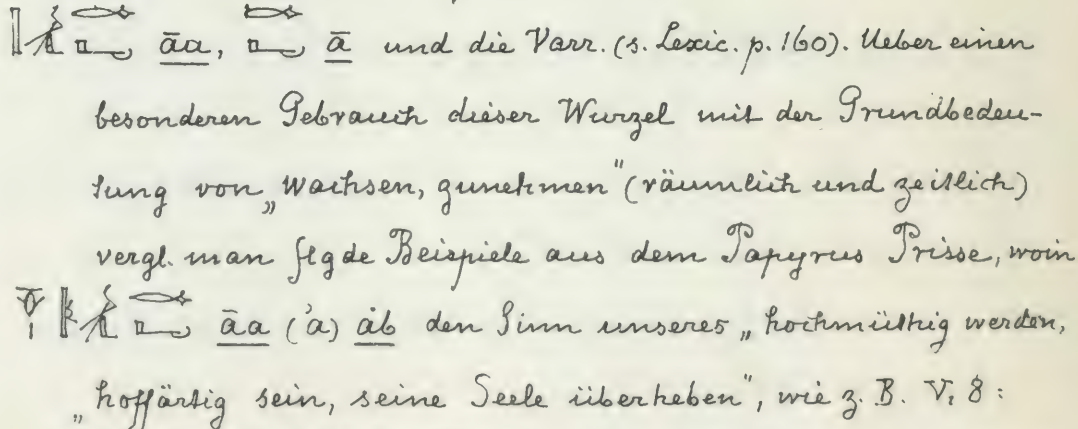 āa, ā und die Varr. (s. Lexic. p. 160). Ueber einen
besonderen Gebrauch dieser Wurzel mit der Grundbedeu-
tung von „wachsen, zunehmen" (räumlich und zeitlich)
vergl. man flgde Beispiele aus dem Papyrus Prisse, worin
āa ('a) ȧb den Sinn unseres „hochmüthig werden,
„hoffärtig sein, seine Seele überheben", wie z. B. V, 8: